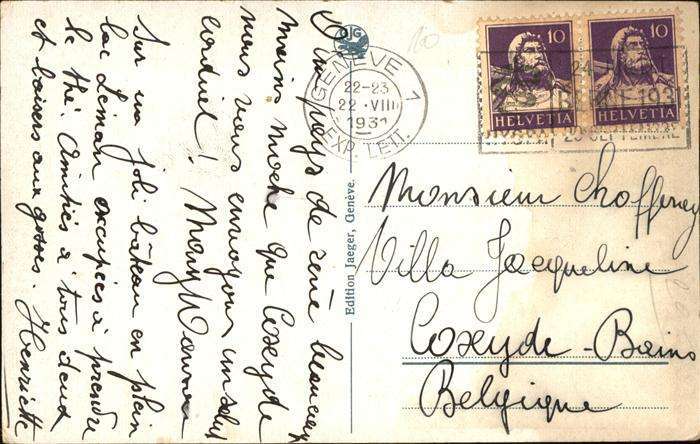 D'un pays de rêve beaucoup
moins moche que Coxyde
nous vous envoyons un salut
cordiel ! Mary
Sur un joli bâteau en plein
lac Léman occupées à prendre
le thé. Amitiés à tous deux
et baisers aux gosses. Henriette
Edition Jaeger, Genève.
JG
GENÈVE 1
22-23
22.VIII
1931
EXP. LETT.
10
HELVETIA
10
HELVETIA
Monsieur
Villa Jacqueline
Coxyde-Bains
Belgique